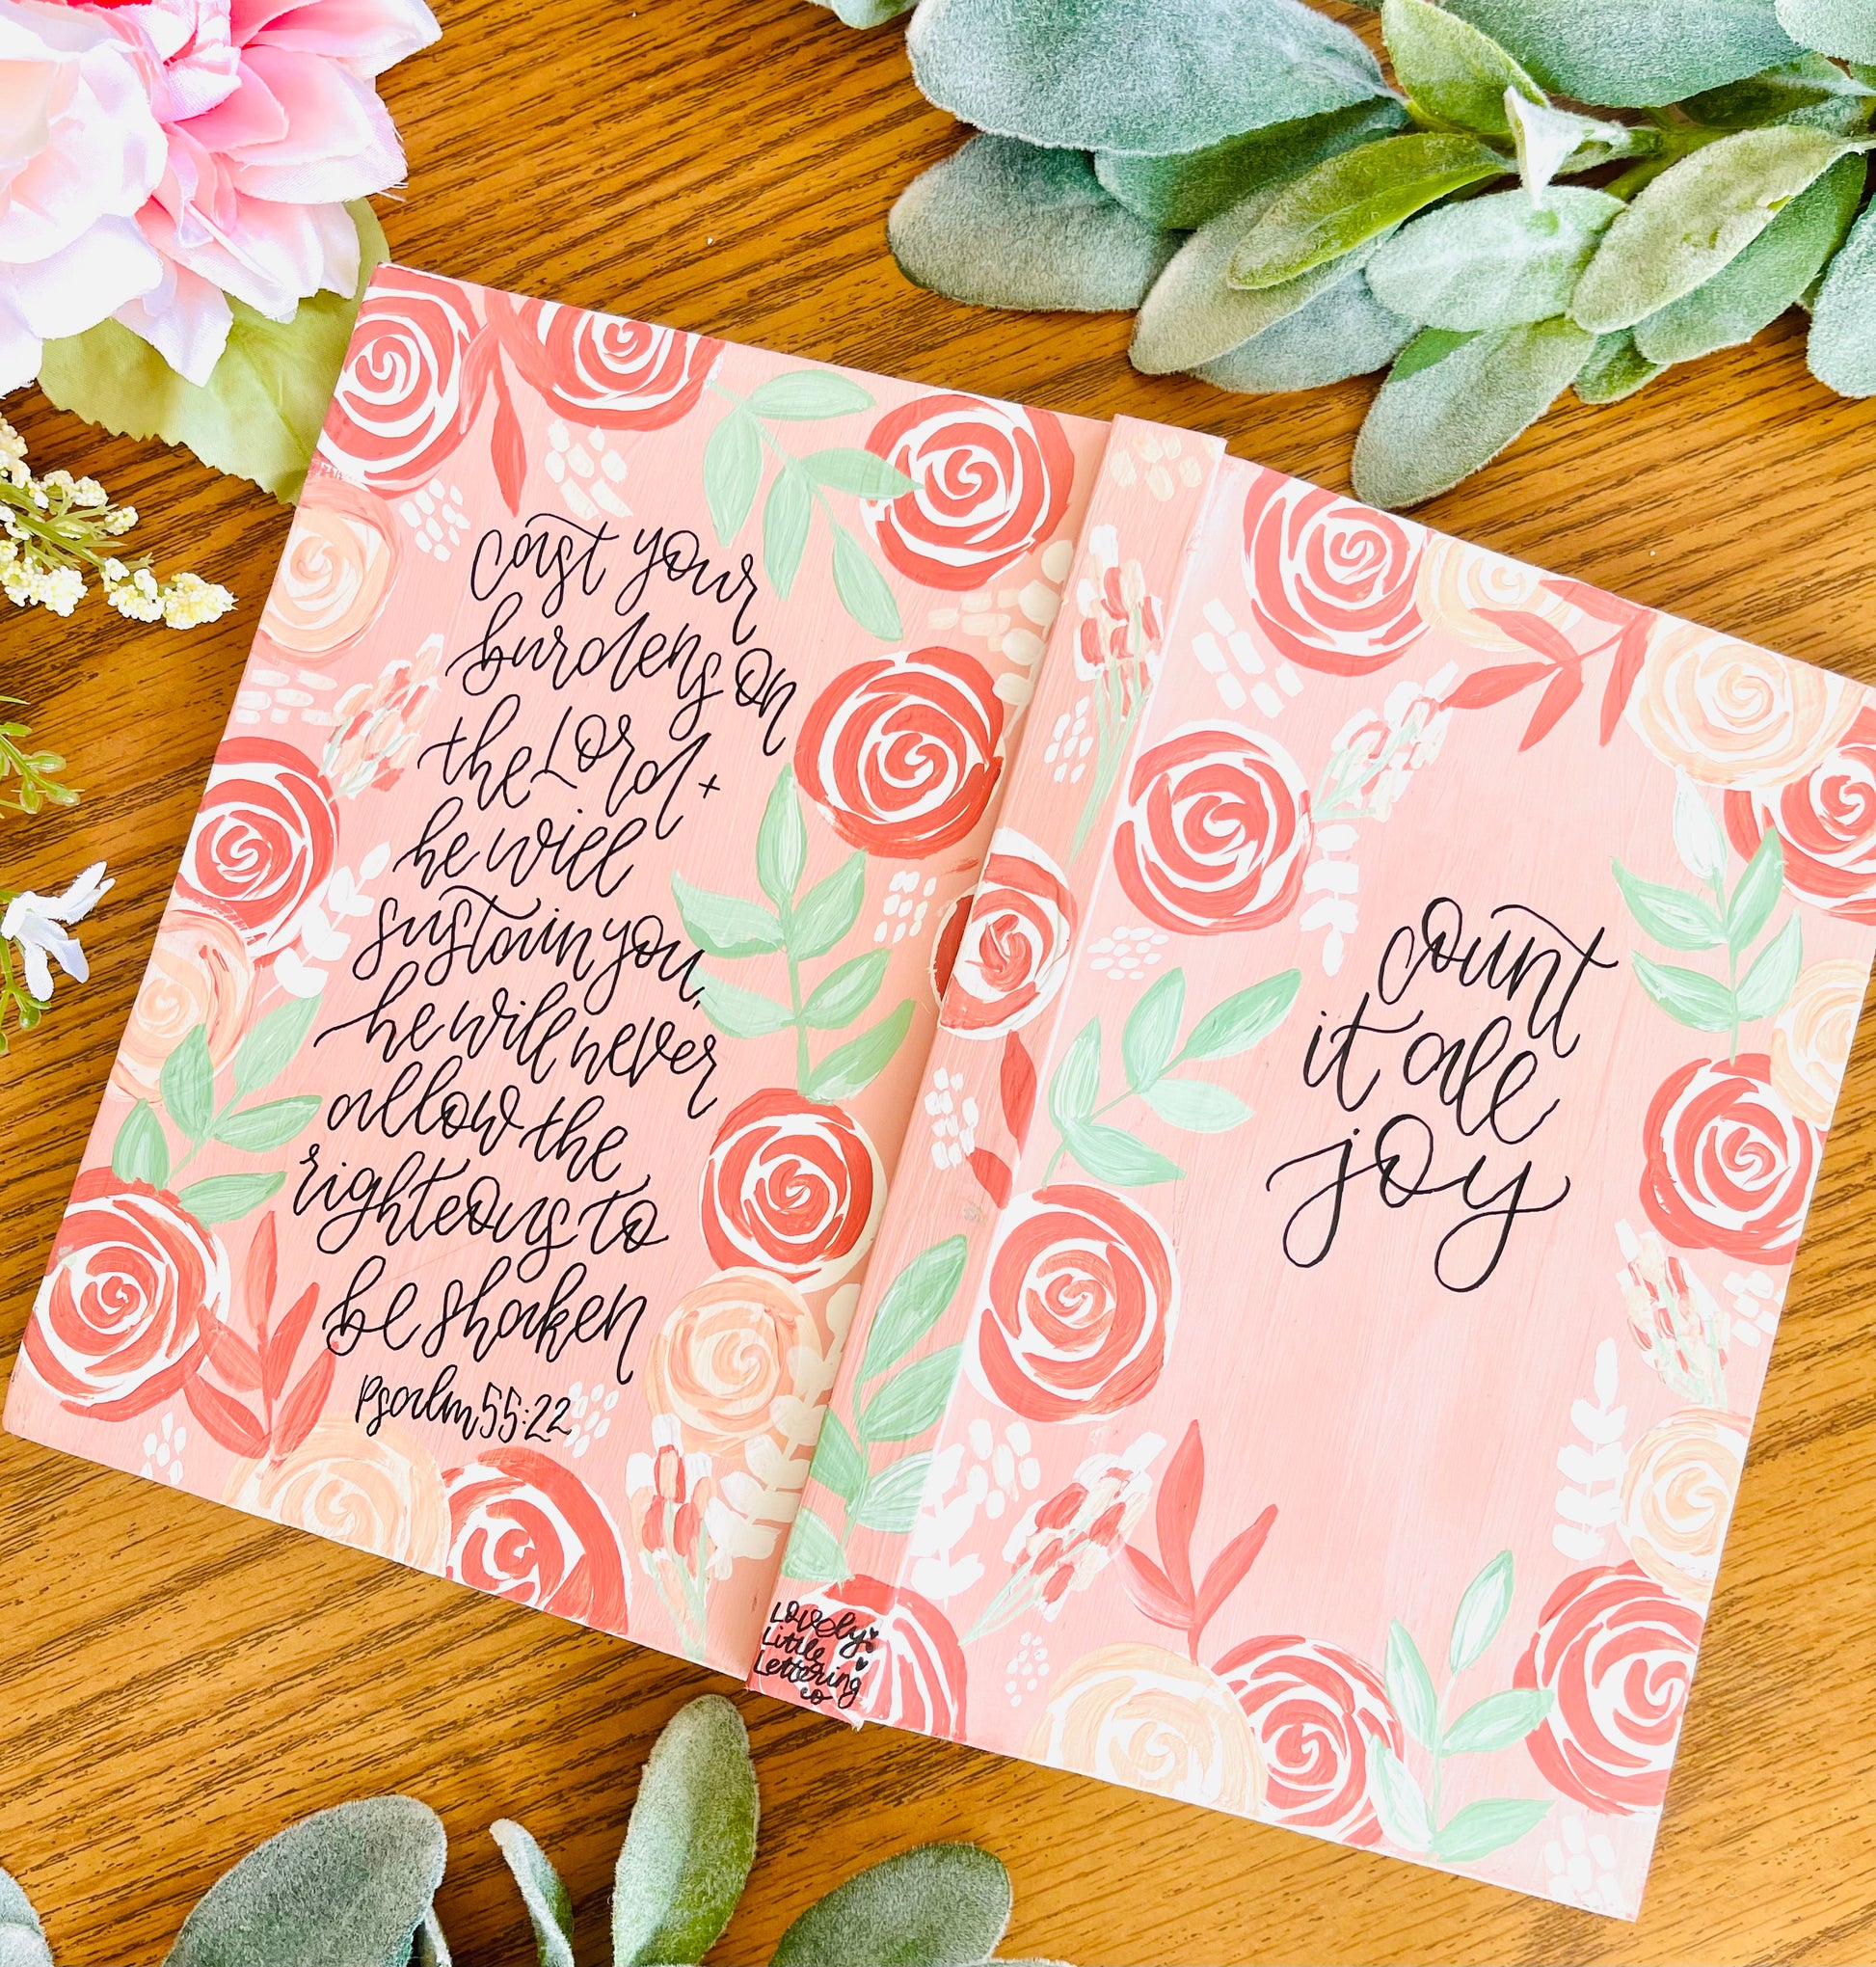 cast your
burdens on
the Lord +
he will
sustain you,
he will never
allow the
righteous to
be shaken
Psalm 55:22
Lovely
Little
Lettering
co
count
it all
joy